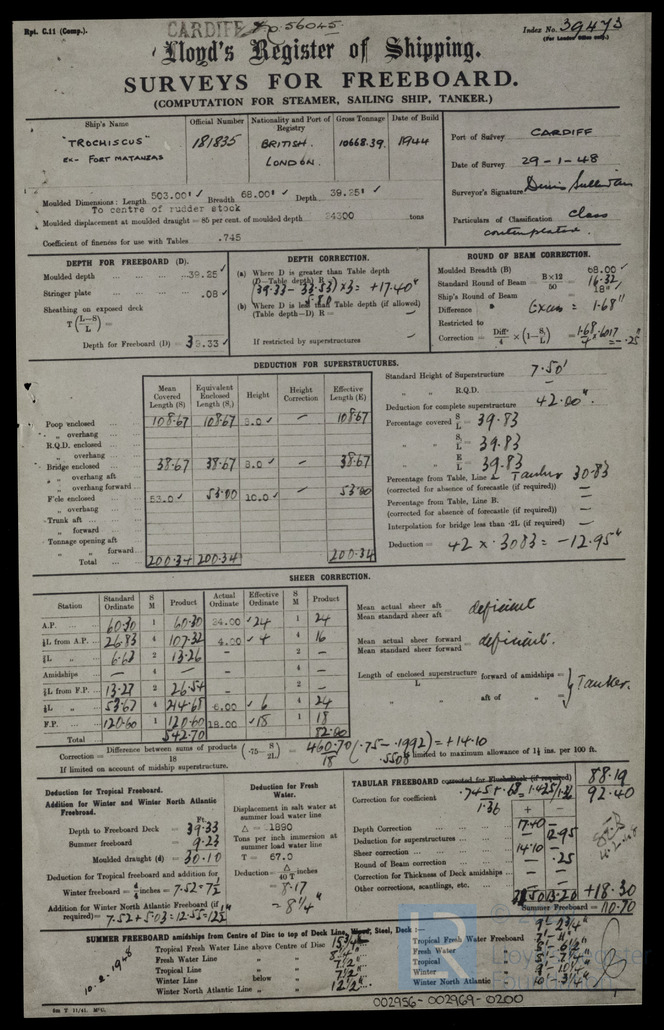 Rpt. C.11 (Comp.).
CARDIFF No. 56045
Index No. 39473
(For London Office only.)
Lloyd's Register of Shipping.
SURVEYS FOR FREEBOARD.
(COMPUTATION FOR STEAMER, SAILING SHIP, TANKER.)
Ship's Name Official Number Nationality and Port of Registry Gross Tonnage Date of Build
"TROCHISCUS" 181835 BRITISH. 10668.39. 1944
ex- FORT MATANZAS LONDON.
Port of Survey CARDIFF
Date of Survey 29-1-48
Surveyor's Signature Denis Sullivan
Particulars of Classification Class contemplated.
Moulded Dimensions: Length 503.00' Breadth 68.00' Depth 39.25'
To centre of rudder stock
Moulded displacement at moulded draught = 85 per cent. of moulded depth 24300 tons
Coefficient of fineness for use with Tables .745
DEPTH FOR FREEBOARD (D).
Moulded depth 39.25
Stringer plate .08
Sheathing on exposed deck
T (L-S / L) =
Depth for Freeboard (D) = 39.33
DEPTH CORRECTION.
(a) Where D is greater than Table depth
(D—Table depth) R =
(39.33 - 33.53) × 3 = +17.40"
5.80
(b) Where D is less than Table depth (if allowed)
(Table depth—D) R =
If restricted by superstructures
ROUND OF BEAM CORRECTION.
Moulded Breadth (B) 68.00
Standard Round of Beam = B×12 / 50 = 16.32
Ship's Round of Beam = 18"
Difference Excess = 1.68"
Restricted to
Correction = Diff / 4 × (1 - S₁/L) = 1.68 / 4 × .6017 = -.25"
DEDUCTION FOR SUPERSTRUCTURES.
Mean Covered Length (S) Equivalent Enclosed Length (S₁) Height Height Correction Effective Length (E)
Poop enclosed 108.67 108.67 8.0 — 108.67
" overhang
R.Q.D. enclosed
" overhang
Bridge enclosed 38.67 38.67 8.0 — 38.67
" overhang aft
" overhang forward
F'cle enclosed 53.0 53.00 10.0 — 53.00
" overhang
Trunk aft
" forward
Tonnage opening aft
" " forward
Total 200.34 200.34 200.34
Standard Height of Superstructure 7.50'
" " R.Q.D. —
Deduction for complete superstructure 42.00"
Percentage covered S/L = 39.83
" " S₁/L = 39.83
" " E/L = 39.83
Percentage from Table, Line Tanker 30.83
(corrected for absence of forecastle (if required))
Percentage from Table, Line B. —
(corrected for absence of forecastle (if required))
Interpolation for bridge less than ·2L (if required) —
Deduction = 42 × .3083 = -12.95"
SHEER CORRECTION.
Station Standard Ordinate S M Product Actual Ordinate Effective Ordinate S M Product
A.P. 60.30 1 60.30 24.00 24 1 24
⅙L from A.P. 26.83 4 107.32 4.00 4 4 16
⅓L " 6.63 2 13.26 — 2 —
Amidships — 4 — — 4 —
⅓L from F.P. 13.27 2 26.54 — 2 —
⅙L " 53.67 4 214.68 6.00 6 4 24
F.P. 120.60 1 120.60 18.00 18 1 18
Total 542.70 82.00
Mean actual sheer aft
Mean standard sheer aft = deficient
Mean actual sheer forward
Mean standard sheer forward = deficient.
Length of enclosed superstructure / L forward of amidships =
" " aft of " = } Tanker.
Correction = Difference between sums of products / 18 (·75 - S/2L) = 460.70 / 18 (.75 - .1992) = +14.10
.5508
If limited on account of midship superstructure. limited to maximum allowance of 1½ ins. per 100 ft.
Deduction for Tropical Freeboard.
Addition for Winter and Winter North Atlantic Freeboard.
Ft.
Depth to Freeboard Deck = 39.33
Summer freeboard = 9.23
Moulded draught (d) = 30.10
Deduction for Tropical freeboard and addition for
Winter freeboard = d/4 inches = 7.52 = 7½
Addition for Winter North Atlantic Freeboard (if required) = 7.52 + 5.03 = 12.55 = 12½"
Deduction for Fresh Water.
Displacement in salt water at summer load water line
Δ = 1890
Tons per inch immersion at summer load water line
T = 67.0
Deduction = Δ / 40 T inches
= 8.17
= 8¼"
TABULAR FREEBOARD corrected for Flush Deck (if required) 88.19
Correction for coefficient .745 + .68 = 1.425 / 1.36 92.40
1.36
+ —
Depth Correction 17.40 —
Deduction for superstructures — 12.95
Sheer correction 14.10 —
Round of Beam correction — .25
Correction for Thickness of Deck amidships — —
Other corrections, scantlings, etc. — —
31.50 13.20 +18.30
Summer Freeboard = 110.70
SUMMER FREEBOARD amidships from Centre of Disc to top of Deck Line, Wood, Steel, Deck :— 9'- 2¾"
Tropical Fresh Water Line above Centre of Disc 15¾" Tropical Fresh Water Freeboard 7'- 11"
Fresh Water Line " " 8¼" Fresh Water " 8'- 6½"
Tropical Line " " 7½" Tropical " 8'- 7¼"
Winter Line below " 7½" Winter " 9'- 10¼"
Winter North Atlantic Line " " 12½" Winter North Atlantic " 10'- 3¼"
10-2-1948
002956-002969-0200
LR